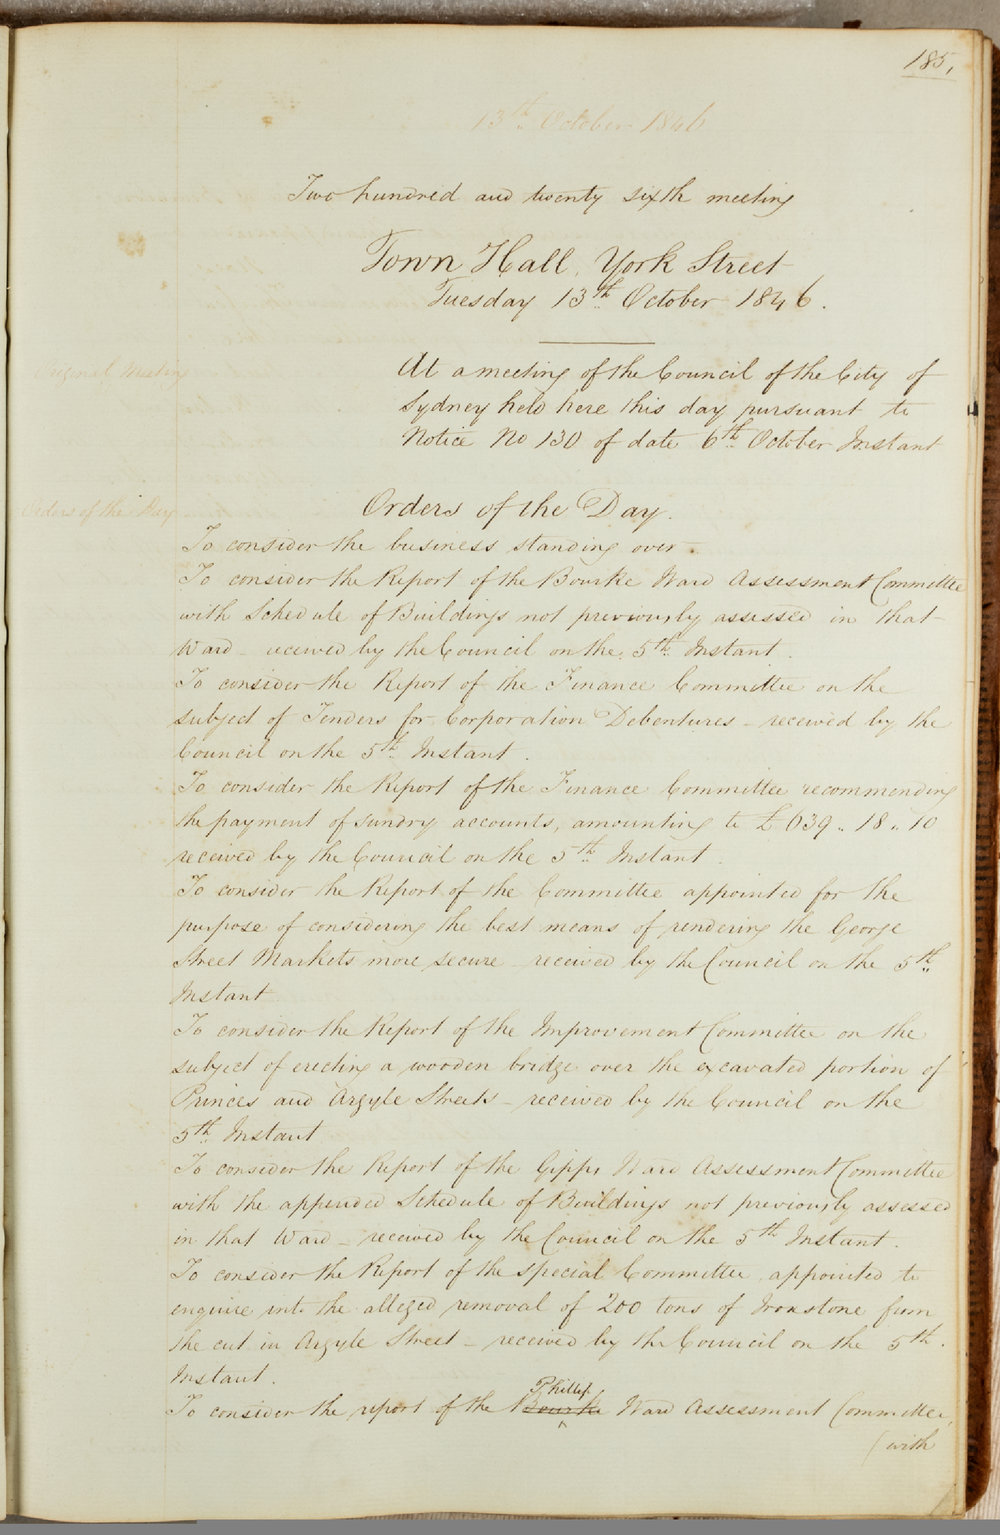 185,
13th October 1846
Two hundred and twenty sixth meeting
Town Hall, York Street
Tuesday 13th October 1846.
Original Meeting
At a meeting of the Council of the City of
Sydney held here this day pursuant to
Notice No 130 of date 6th October Instant
Orders of the Day
Orders of the Day.
To consider the business standing over.
To consider the Report of the Bourke Ward Assessment Committee
with Schedule of Buildings not previously assessed in that
Ward - received by the Council on the 5th Instant.
To consider the Report of the Finance Committee on the
subject of Tenders for Corporation Debentures - received by the
Council on the 5th Instant.
To consider the Report of the Finance Committee recommending
the payment of sundry accounts, amounting to £639.. 18.. 10
received by the Council on the 5th Instant.
To consider the Report of the Committee appointed for the
purpose of considering the best means of rendering the George
Street Markets more secure - received by the Council on the 5th
Instant
To consider the Report of the Improvement Committee on the
subject of erecting a wooden bridge over the excavated portion of
Princes and Argyle Streets - received by the Council on the
5th Instant
To consider the Report of the Gipps Ward Assessment Committee
with the appended Schedule of Buildings not previously assessed
in that Ward - received by the Council on the 5th Instant.
To consider the Report of the special Committee appointed to
enquire into the alleged removal of 200 tons of Ironstone from
the cut in Argyle Street - received by the Council on the 5th.
Instant.
Phillip
To consider the report of the Bourke Ward Assessment Committee,
(with